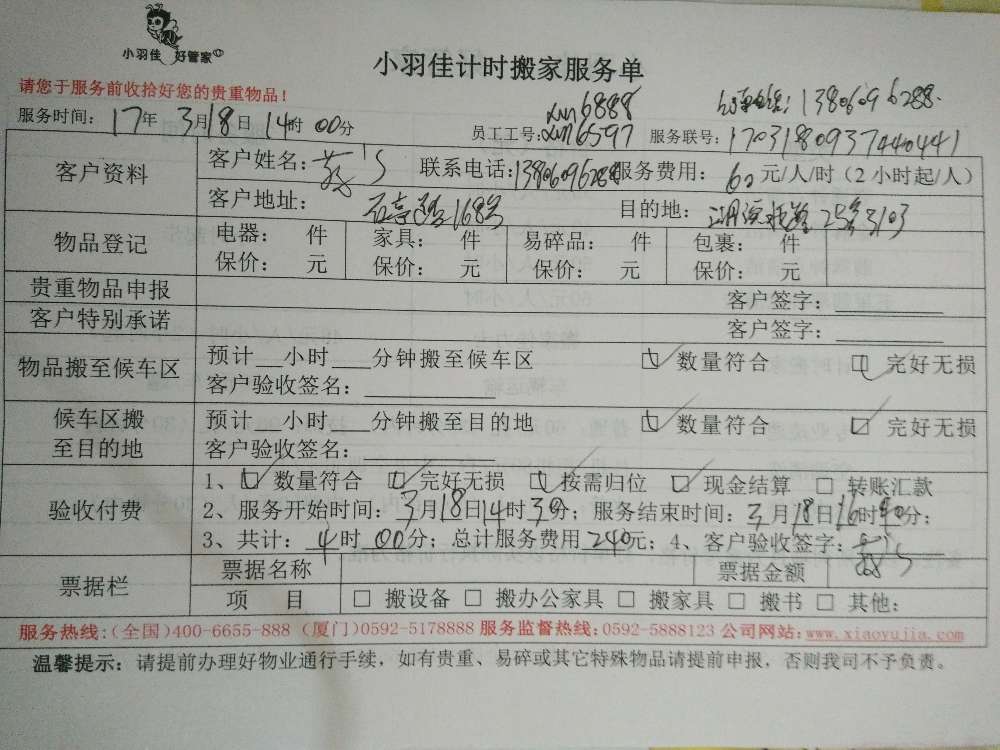 小羽佳 好管家
小羽佳计时搬家服务单
请您于服务前收拾好您的贵重物品！
xm6888 13806096288
服务时间：17年3月18日14时00分 员工工号：xm6597 服务联号：170318093744044​1
客户资料 客户姓名： 联系电话：13806096288 服务费用：60元/人/时（2小时起/人）
客户地址：168号 目的地：25号3103
物品登记 电器： 件 家具： 件 易碎品： 件 包裹： 件
保价： 元 保价： 元 保价： 元 保价： 元
贵重物品申报 客户签字：
客户特别承诺 客户签字：
物品搬至候车区 预计__小时___分钟搬至候车区 数量符合 完好无损
客户验收签名：
候车区搬至目的地 预计__小时___分钟搬至目的地 数量符合 完好无损
客户验收签名：
验收付费 1、数量符合 完好无损 按需归位 现金结算 转账汇款
2、服务开始时间：3月18日14时30分；服务结束时间：3月18日16时40分；
3、共计：4时00分；总计服务费用240元；4、客户验收签字：
票据栏 票据名称 票据金额
项 目 搬设备 搬办公家具 搬家具 搬书 其他：
服务热线：（全国）400-6655-888（厦门）0592-5178888 服务监督热线：0592-5888123 公司网站：www.xiaoyujia.com
温馨提示：请提前办理好物业通行手续，如有贵重、易碎或其它特殊物品请提前申报，否则我司不予负责。